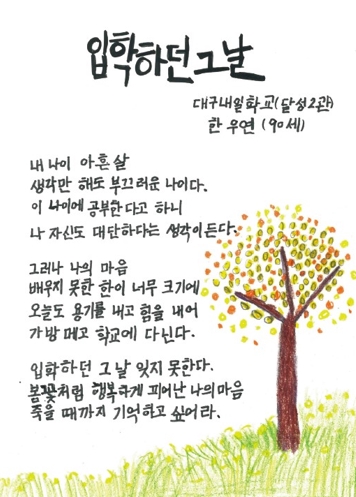 입학하던 그날
대구내일학교(달성2관)
한 우연 (90세)
내 나이 아흔 살
생각만 해도 부끄러운 나이다.
이 나이에 공부한다고 하니
나 자신도 대단하다는 생각이 든다.
그러나 나의 마음
배우지 못한 한이 너무 크기에
오늘도 용기를 내고 힘을 내어
가방 메고 학교에 다닌다.
입학하던 그 날 잊지 못한다.
봄꽃처럼 행복하게 피어난 나의 마음
죽을 때까지 기억하고 싶어라.